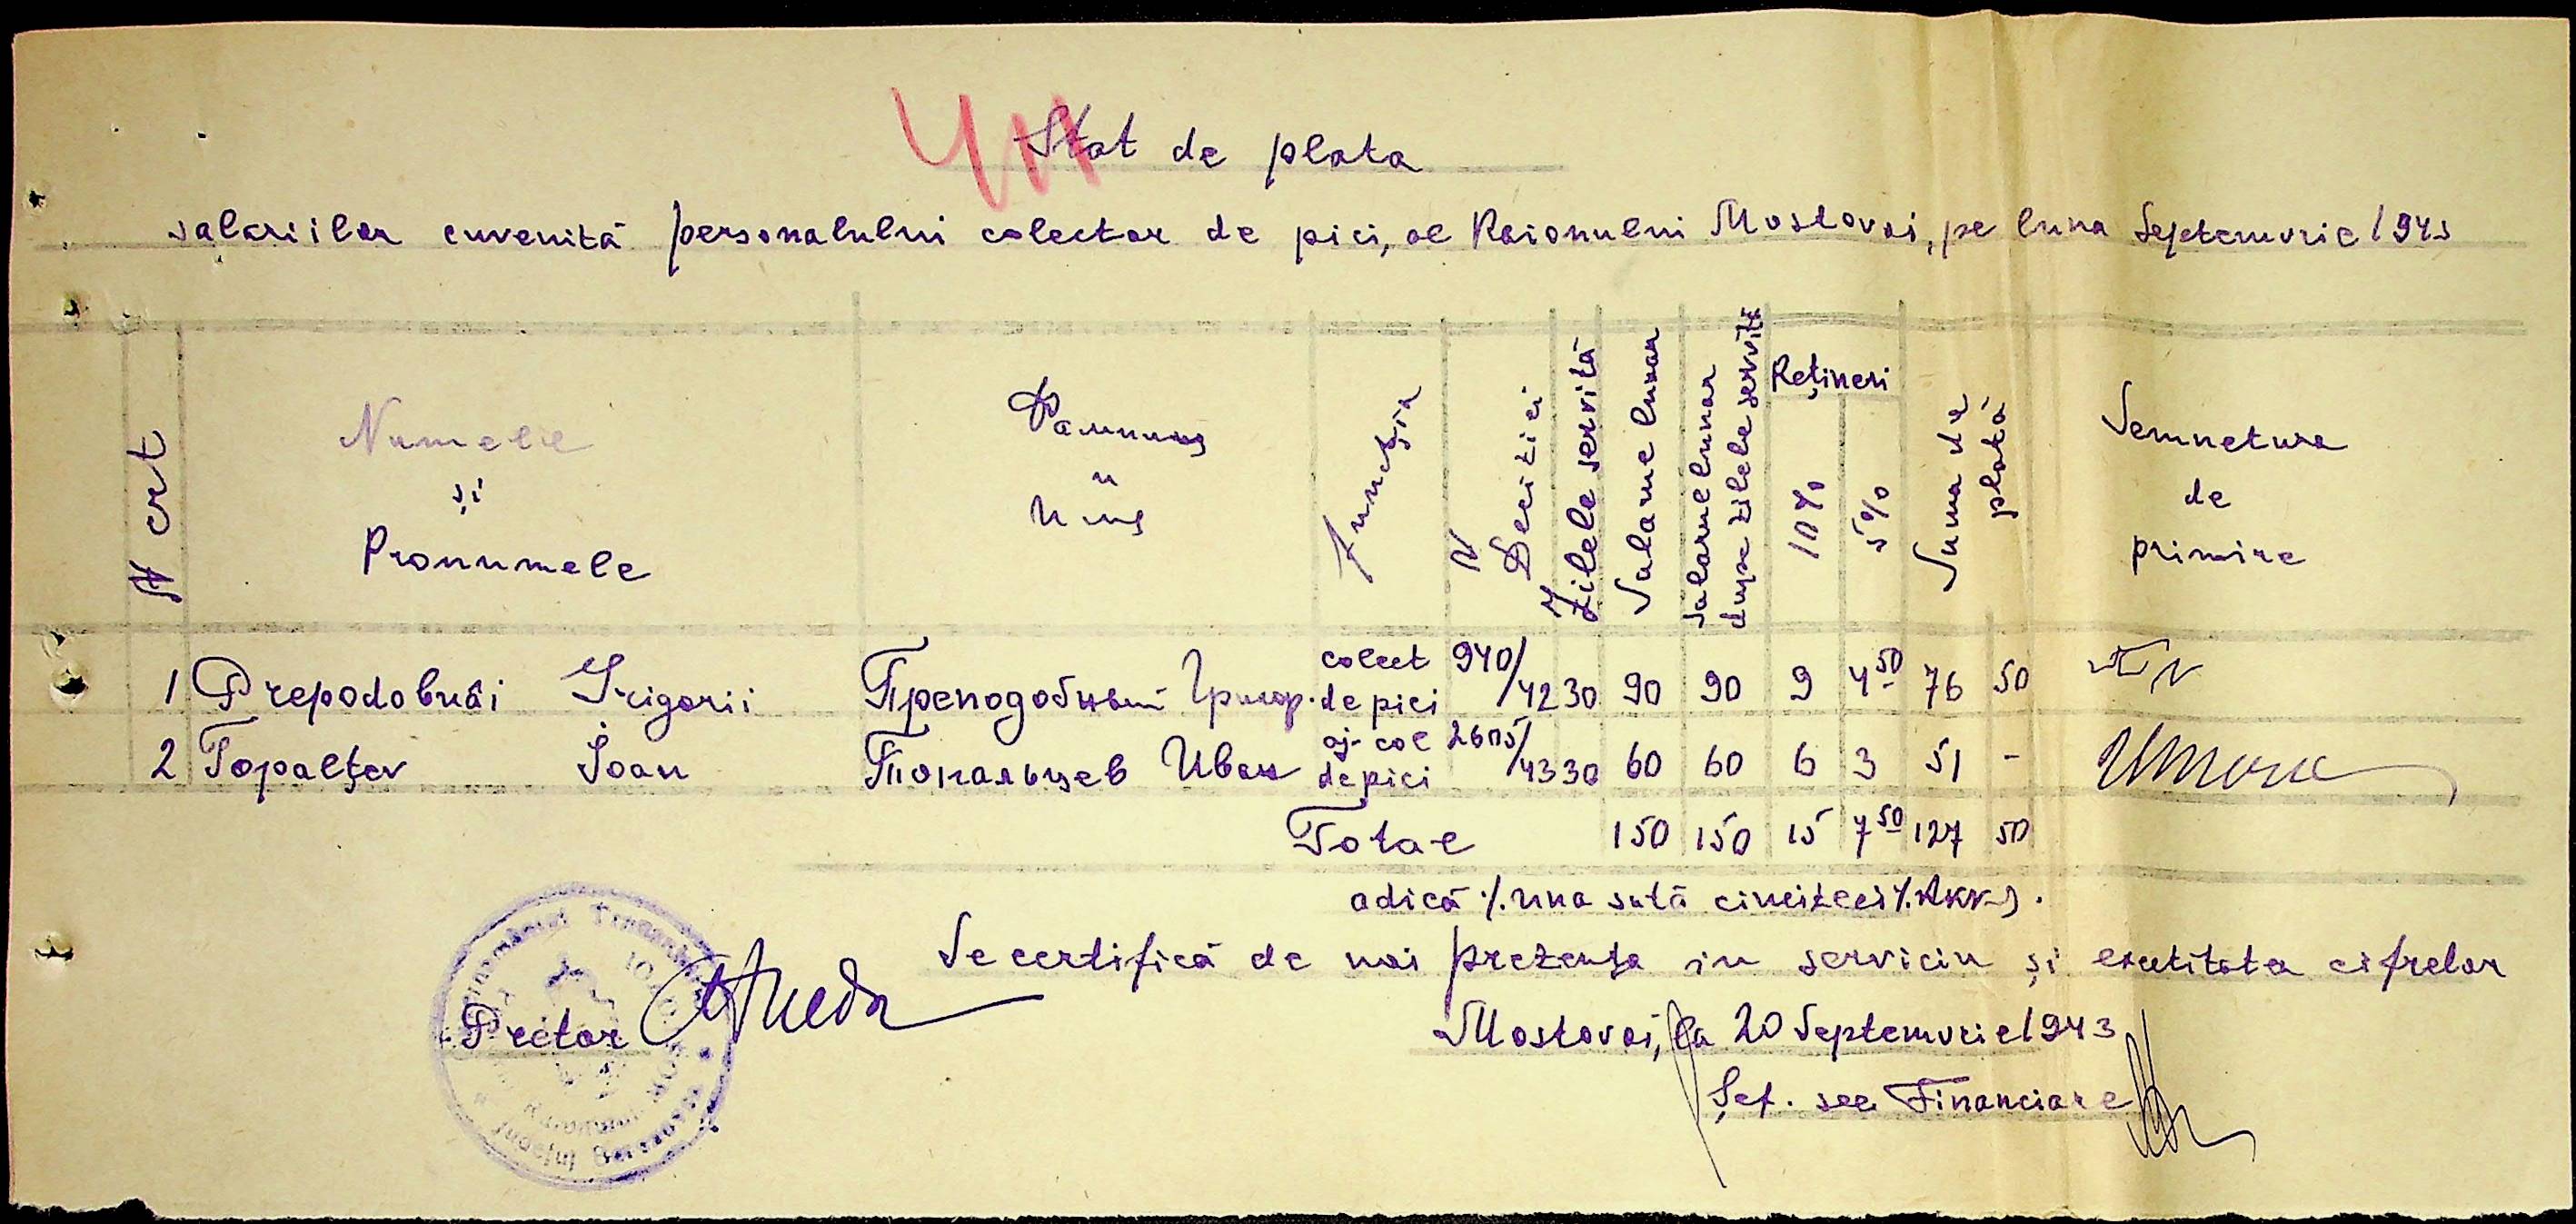 Stat de plata
salariilor cuvenită personalului colector de pici, al Raionului Mostovoi, pe luna Septemvrie 1943
N crt
Numele
și
Pronumele
Фамилия
и
Имя
Funcția
N
Deciziei
Zilele servită
Salarue lunar
Salarue lunar
dupa zilele servită
Rețineri
10%
5%
Suma de
plată
Semnetura
de
primire
1 Prepodobnâi Grigorii Преподобный Григор. colect de pici 940/42 30 90 90 9 4 50 76 50
2 Topalțev Ioan Топальцев Иван aj- col de pici 2605/43 30 60 60 6 3 51 -
Total 150 150 15 7 50 127 50
adică ./. una sută cincizeci ./.
Se certifică de noi prezența in serviciu și exatitatea cifrelor
Pretor
Mostovoi, la 20 Septemvrie 1943
Șef. sec Financiare
Județul Berezovca